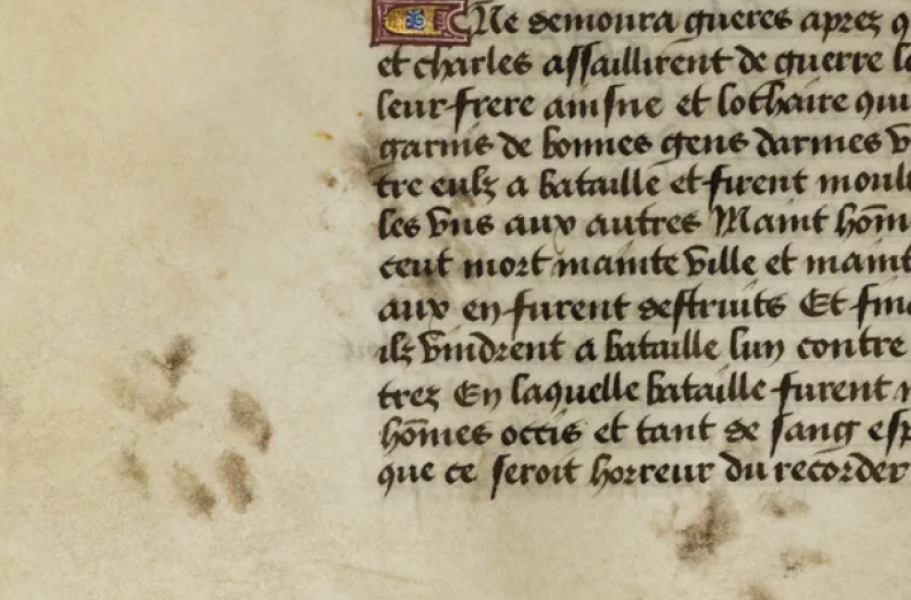 Ne demoura gueres aprez q
et charles assaillirent de guerre le
leur frere ainsne et lothaire qui
garnis de bonnes gens darmes v
tre eulz a bataille et firent moul
les vns aux autres Maint hōm
ceut mort mainte ville et maint
aux en furent destruits Et fina
ilz vindrent a bataille lun contre
trez En laquelle bataille furent
hōmes occis et tant de sang esp
que ce seroit horreur du recorder